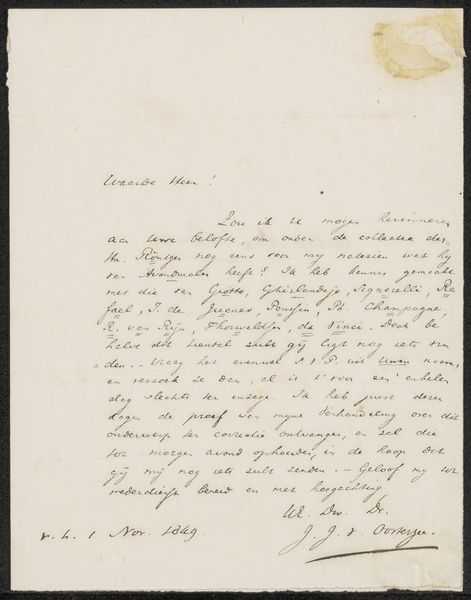 Waarde Heer!
Zou ik U mogen herinneren
aan uwe belofte, om onder de collectie des
Hn. Röntgen nog eens voor my natezien wat hy
van Avondmalen heeft? Ik heb kennis gemaakt
met die van Giotto, Ghirlandajo, Signorelli, Ra-
fael, J. de Juanes, Poussin, Ph. Champagne,
R. van Rijn, Thorwaldsen, da Vinci. Doch be-
halve dit twaalftal zult gij ligt nog iets vin-
den. Vraag het evenwel s.v.p. uit Uwen naam,
en verzoek ze dan, al is 't voor een' enkelen
dag slechts ter inzage. Ik heb juist dezer
dagen de proef van myne Verhandeling over dit
onderwerp ter correctie ontvangen, en zal die
tot morgen avond ophouden, in de hoop dat
gij mij nog iets zult zenden. - Geloof my tot
wederdienst bereid en met hoogachting
Uw. Dw. Dr.
J. J. v. Oosterzee.
v. h. 1 Nov. 1849.